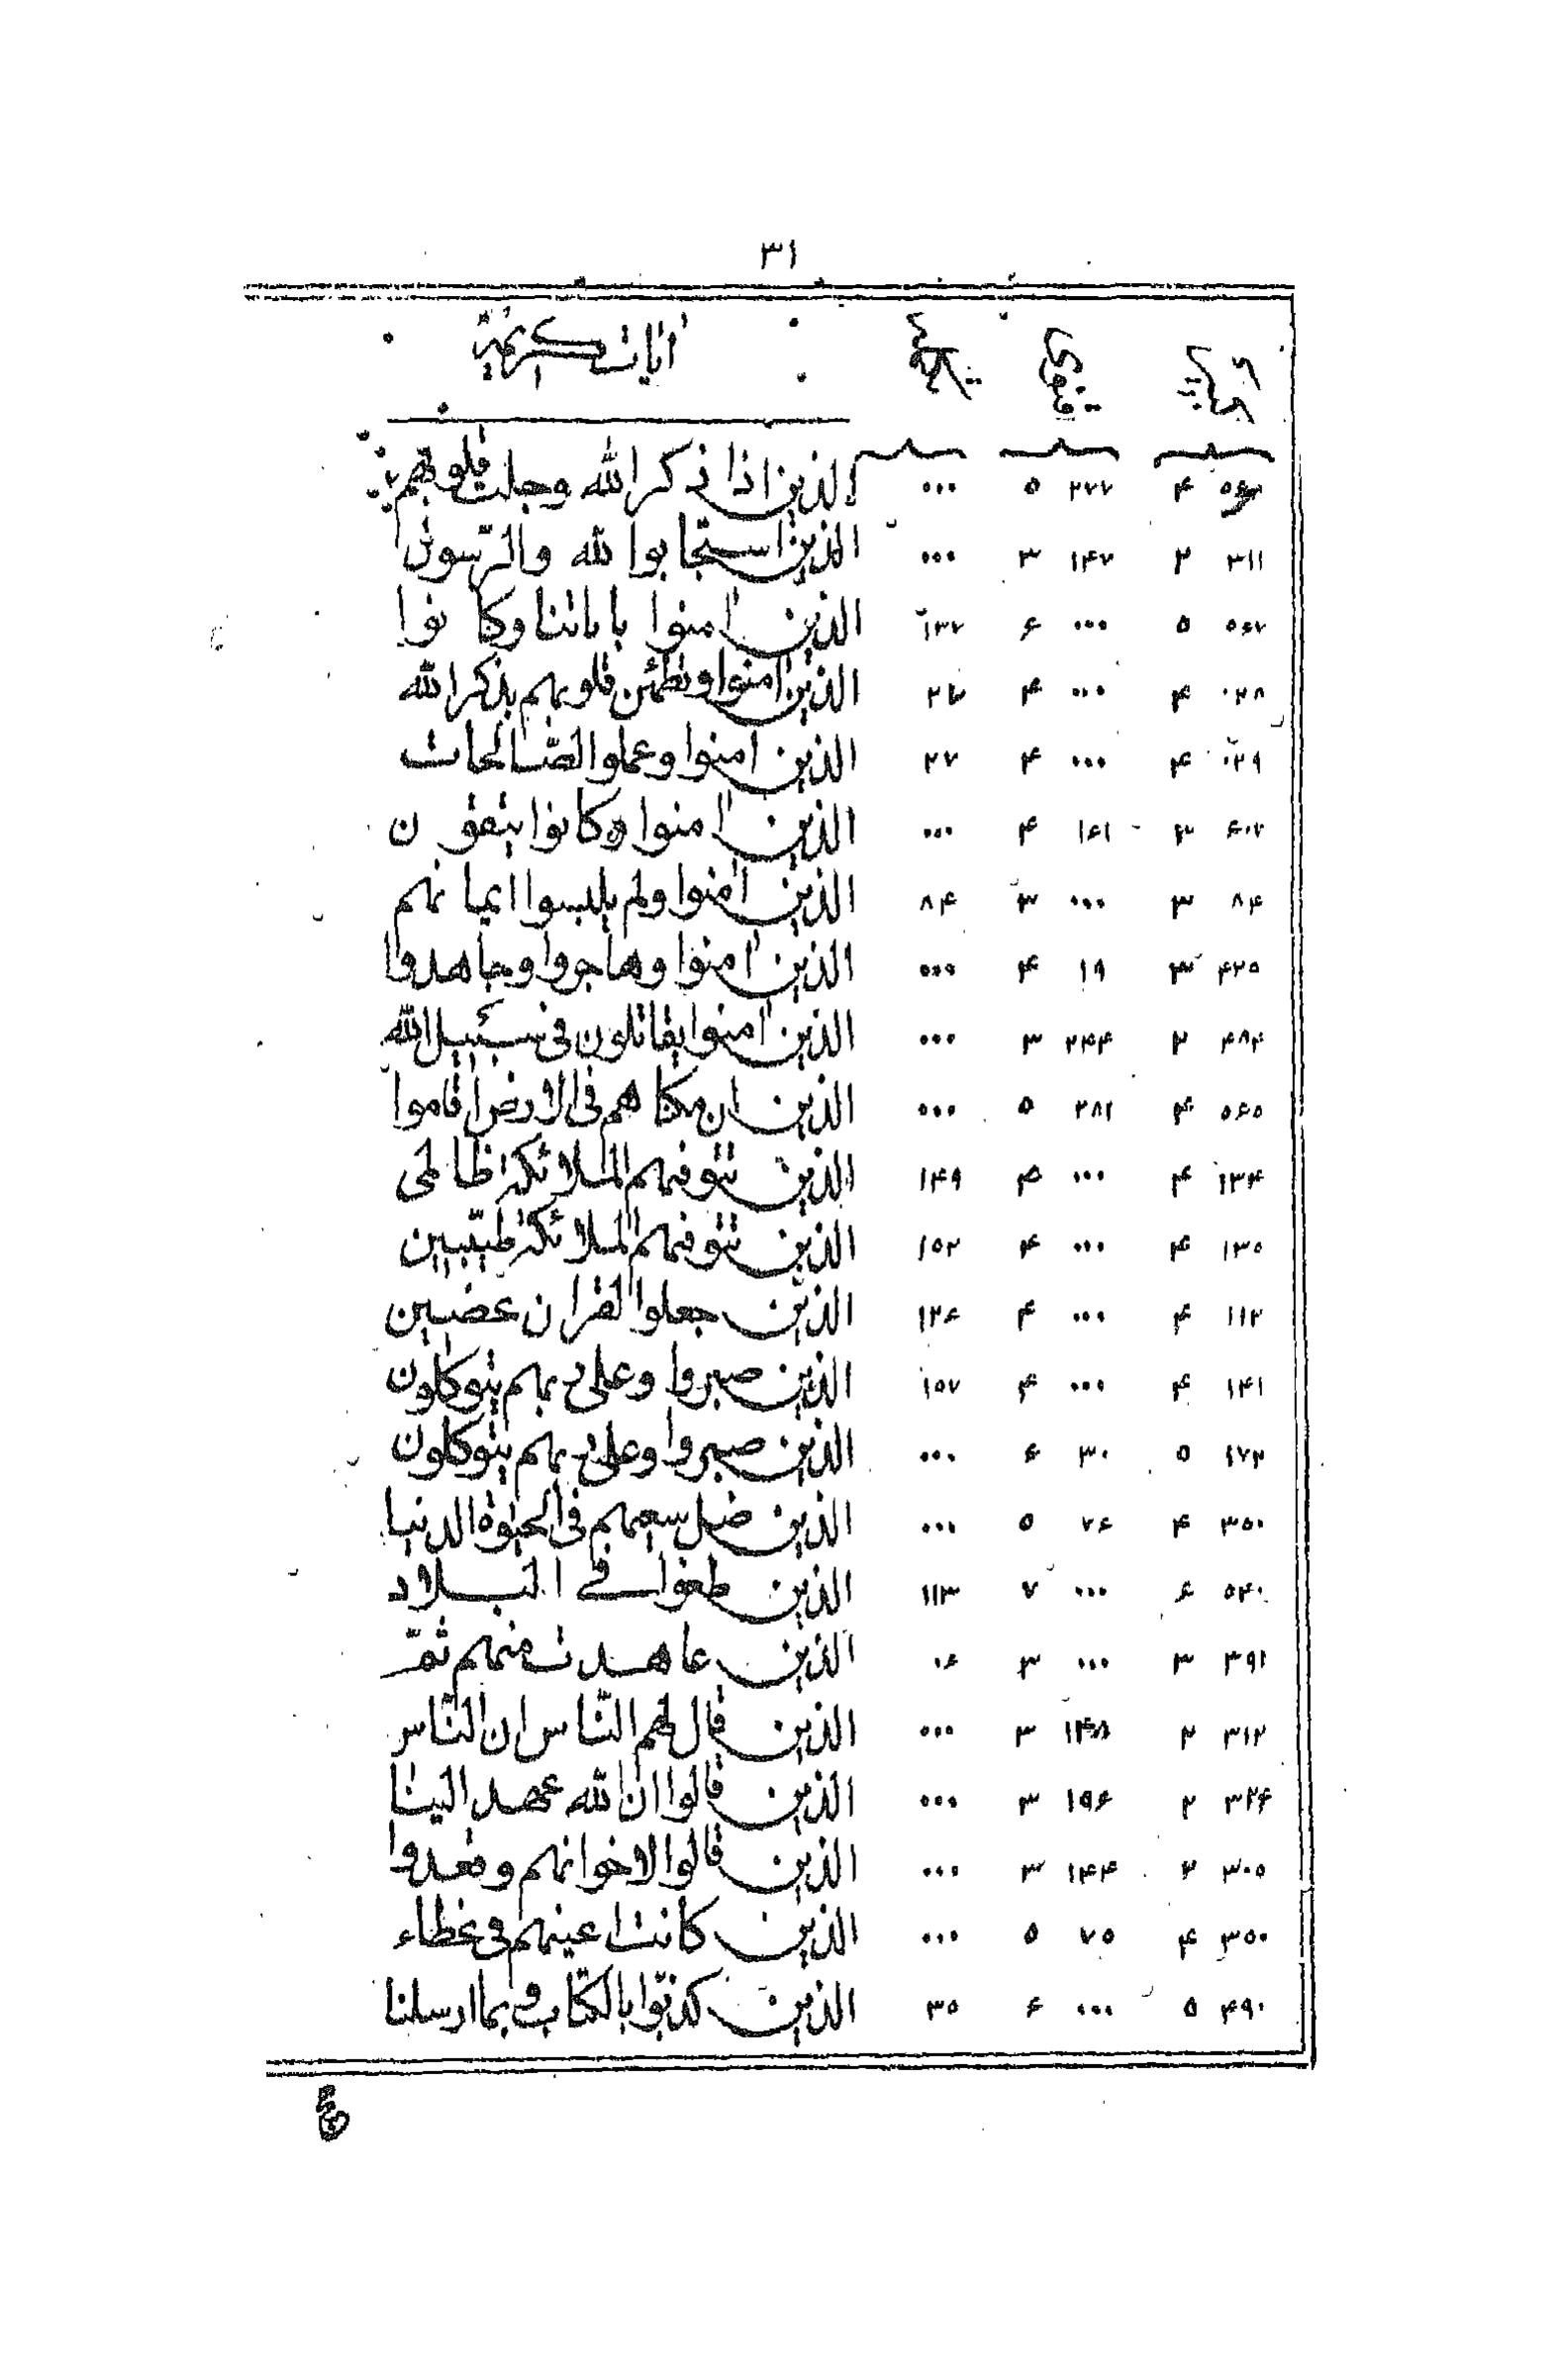 ۳۱
آیات کریمة
۵۶۳ ۴ ۲۷۷ ۵ ۰۰۰ الذین اذا ذکر الله وجلت قلوبهم
۳۱۱ ۲ ۱۴۷ ۳ ۰۰۰ الذین استجابوا لله والرّسول
۵۶۷ ۵ ۰۰۰ ۶ ۱۳۷ الذین امنوا باياتنا وکانوا
۰۲۸ ۴ ۰۰۰ ۴ ۲۷ الذین امنوا وتطمئن قلوبهم بذکر الله
۰۲۹ ۴ ۰۰۰ ۴ ۲۷ الذین امنوا وعملوا الصّالحات
۶۰۷ ۳ ۱۶۱ ۴ ۰۰۰ الذین امنوا وکانوا یتقون
۸۴ ۳ ۰۰۰ ۳ ۸۴ الذین امنوا ولم یلبسوا ایمانهم
۴۲۵ ۳ ۱۹ ۴ ۰۰۰ الذین امنوا وهاجروا وجاهدوا
۴۸۴ ۲ ۲۴۴ ۳ ۰۰۰ الذین امنوا یقاتلون فی سبیل الله
۵۶۵ ۴ ۲۸۱ ۵ ۰۰۰ الذین ان مکناهم فی الارض اقاموا
۱۳۴ ۴ ۰۰۰ ۴ ۱۴۹ الذین تتوفیهم الملائکة ظالمی
۱۳۵ ۴ ۰۰۰ ۴ ۱۵۲ الذین تتوفیهم الملائکة طیّبین
۱۱۲ ۴ ۰۰۰ ۴ ۱۲۶ الذین جعلوا القران عضین
۱۴۱ ۴ ۰۰۰ ۴ ۱۵۷ الذین صبروا وعلی ربهم یتوکلون
۱۷۲ ۵ ۳۰ ۶ ۰۰۰ الذین صبروا وعلی ربهم یتوکلون
۳۵۰ ۴ ۷۶ ۵ ۰۰۰ الذین ضل سعیهم فی الحیوة الدنیا
۵۴۰ ۶ ۰۰۰ ۷ ۱۱۳ الذین طغوا فی البلاد
۳۹۱ ۳ ۰۰۰ ۳ ۰۶ الذین عاهدت منهم ثمّ
۳۱۲ ۲ ۱۴۸ ۳ ۰۰۰ الذین قال لهم النّاس ان النّاس
۳۲۶ ۲ ۱۹۶ ۳ ۰۰۰ الذین قالوا ان الله عهد الینا
۳۰۵ ۲ ۱۴۴ ۳ ۰۰۰ الذین قالوا لاخوانهم وقعدوا
۳۵۰ ۴ ۷۵ ۵ ۰۰۰ الذین کانت اعینهم فی غطاء
۴۹۰ ۵ ۰۰۰ ۶ ۳۵ الذین کذّبوا بالکتاب وبما ارسلنا